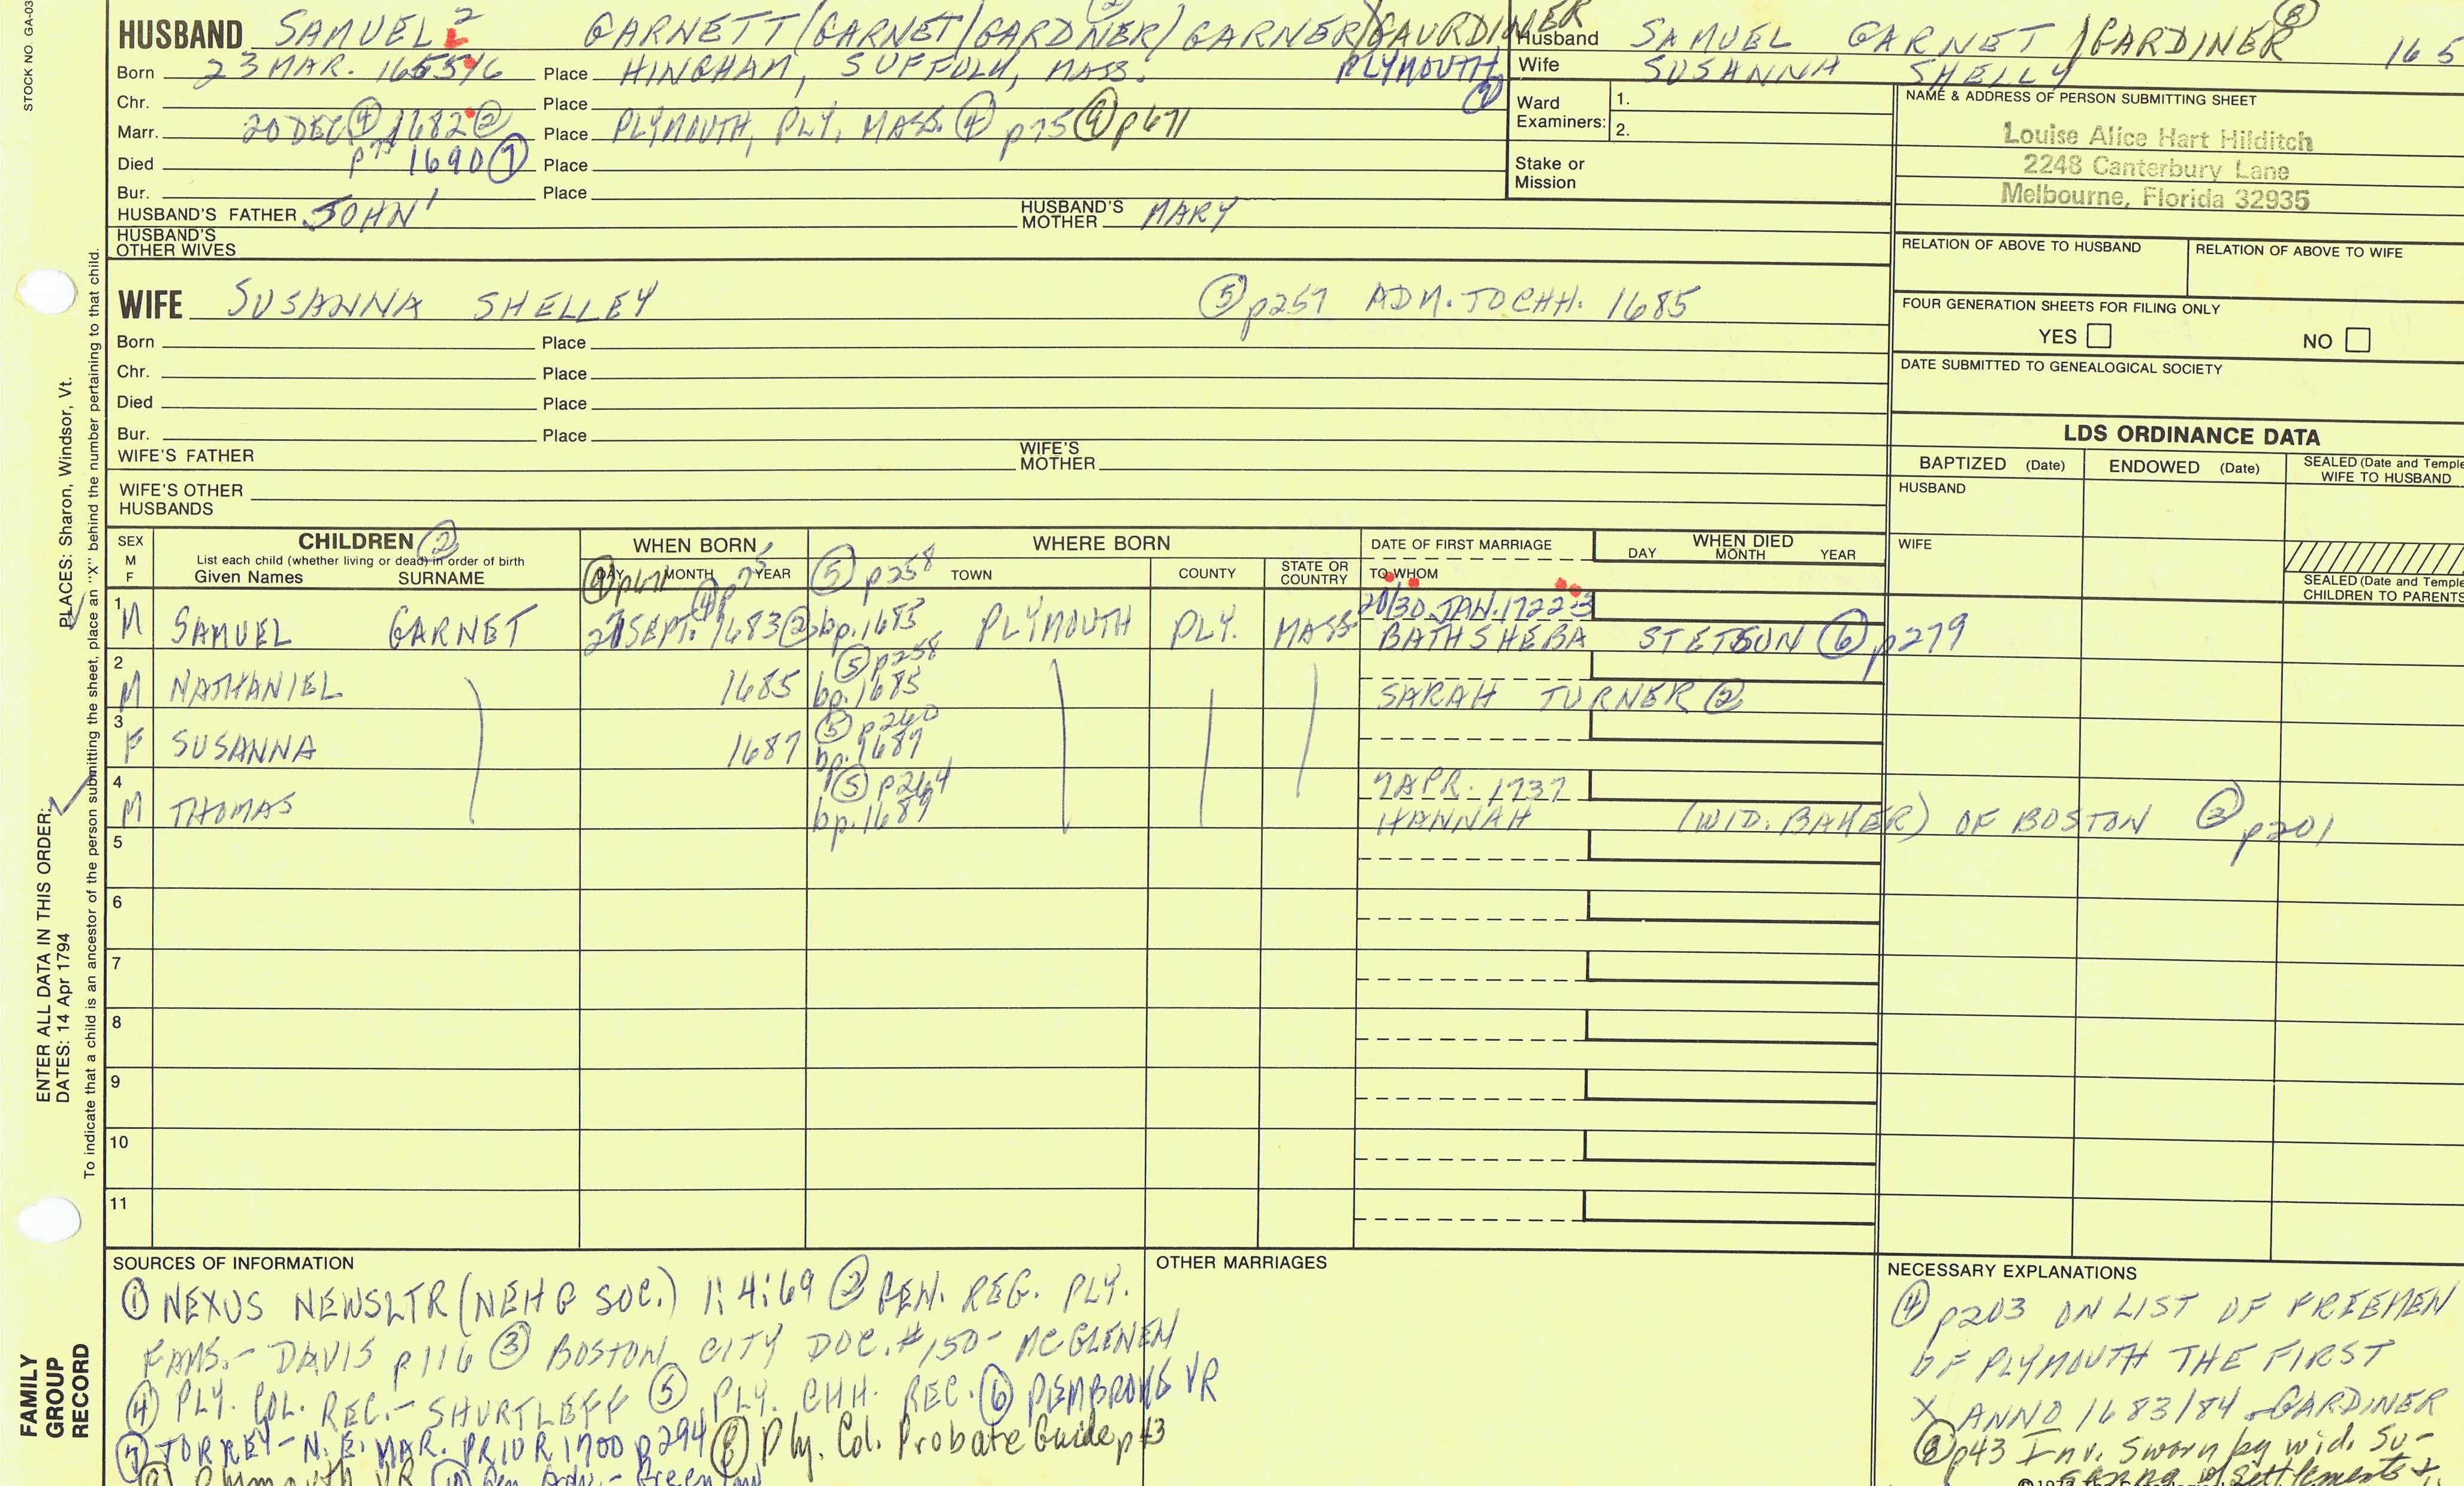 STOCK NO. GA-03
HUSBAND SAMUEL 2 GARNETT/GARNET/GARDNER/GARNER/GAURDINER
Born 23 MAR. 1655/6 Place HINGHAM, SUFFOLK, MASS. PLYMOUTH 9
Chr. Place
Marr. 20 DEC 4 1682 2 Place PLYMOUTH, PLY, MASS. 4 p75 9 p671
p75
Died 1690 7 Place
Bur. Place
HUSBAND'S FATHER JOHN 1 HUSBAND'S MOTHER MARY
HUSBAND'S OTHER WIVES
Husband SAMUEL GARNET /GARDINER 8 165
Wife SUSANNA SHELLY
Ward Examiners: 1.
2.
Stake or Mission
NAME & ADDRESS OF PERSON SUBMITTING SHEET
Louise Alice Hart Hilditch
2248 Canterbury Lane
Melbourne, Florida 32935
RELATION OF ABOVE TO HUSBAND RELATION OF ABOVE TO WIFE
WIFE SUSANNA SHELLEY 5 p257 ADM. TO CHH. 1685
Born Place
Chr. Place
Died Place
Bur. Place
WIFE'S FATHER WIFE'S MOTHER
WIFE'S OTHER HUSBANDS
FOUR GENERATION SHEETS FOR FILING ONLY
YES NO
DATE SUBMITTED TO GENEALOGICAL SOCIETY
LDS ORDINANCE DATA
BAPTIZED (Date) ENDOWED (Date) SEALED (Date and Temple
WIFE TO HUSBAND
HUSBAND
WIFE
SEALED (Date and Temple
CHILDREN TO PARENTS
SEX M F CHILDREN 2 WHEN BORN WHERE BORN DATE OF FIRST MARRIAGE WHEN DIED
List each child (whether living or dead) in order of birth DAY MONTH YEAR
Given Names SURNAME DAY MONTH YEAR TOWN COUNTY STATE OR COUNTRY TO WHOM
9 p671 4 p75 5 p258
1 M SAMUEL GARNET 27 SEPT. 1683 2 bp. 1683 PLYMOUTH PLY. MASS 20/30 JAN. 1722-3
BATHSHEBA STETSON 6 p279
2 M NATHANIEL 1685 5 p258 bp. 1685 SARAH TURNER 2
3 F SUSANNA 1687 5 p260 bp. 1687
4 M THOMAS 5 p264 bp. 1689 7 APR. 1737
HANNAH (WID. BAKER) OF BOSTON 3 p201
5
6
7
8
9
10
11
PLACES: Sharon, Windsor, Vt.
To indicate that a child is an ancestor of the person submitting the sheet, place an "X" behind the number pertaining to that child.
ENTER ALL DATA IN THIS ORDER:
DATES: 14 Apr 1794
FAMILY
GROUP
RECORD
SOURCES OF INFORMATION
1 NEXUS NEWSLTR (NEHG SOC.) 1:4:69 2 GEN. REG. PLY.
FAMS.- DAVIS p116 3 BOSTON CITY DOC. #150- MCGLENEN
4 PLY. COL. REC.- SHURTLEFF 5 PLY. CHH. REC. 6 PEMBROKE VR
7 TORREY- N.E. MAR. PRIOR 1700 p294 8 Ply. Col. Probate Guide p43
9 Plymouth VR 10
OTHER MARRIAGES
NECESSARY EXPLANATIONS
4 p203 ON LIST OF FREEMEN
OF PLYMOUTH THE FIRST
X ANNO 1683/84 - GARDINER
8 p43 Inv. sworn by wid. Su-
sanna w/ settlements